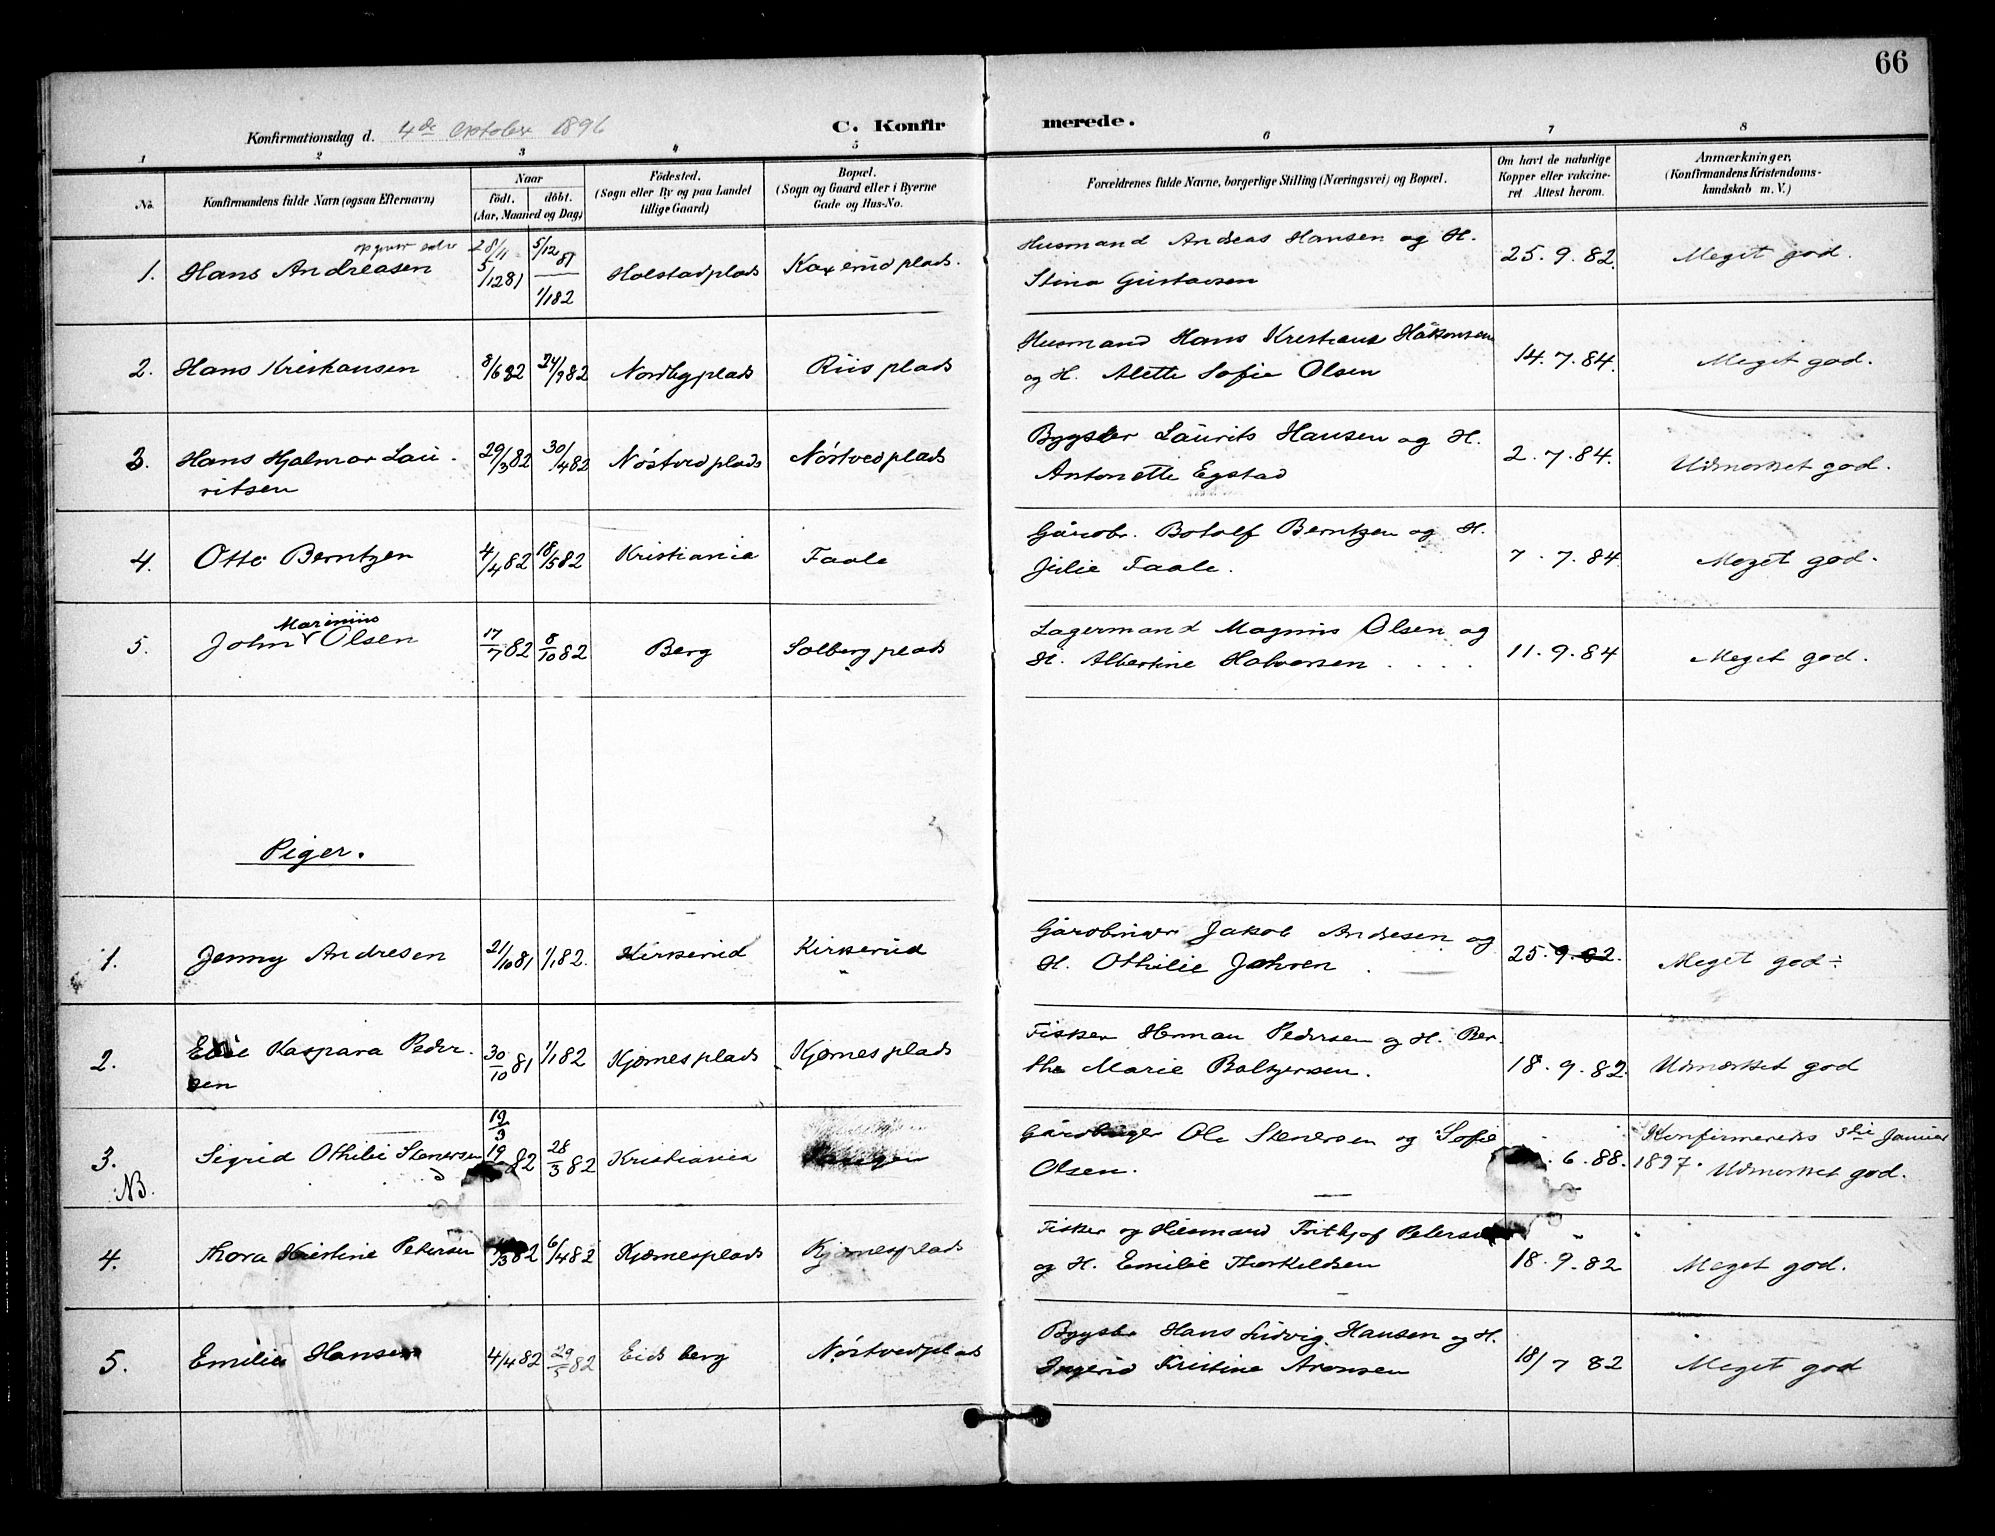 66
Konfirmationsdag d. 4de Oktober 1896
C. Konfir
merede.
1 2 3 4 5 6 7 8
No.
Konfirmandens fulde Navn (ogsaa Efternavn)
Naar
født. døbt.
(Aar, Maaned og Dag)
Fødested.
(Sogn eller By og paa Landet
tillige Gaard)
Bopæl.
(Sogn og Gaard eller i Byerne
Gade og Hus-No.
Forældrenes fulde Navne, borgerlige Stilling (Næringsvei) og Bopæl.
Om havt de naturlige
Kopper eller vakcine-
ret. Attest herom.
Anmærkninger,
(Konfirmandens Kristendoms-
kundskab m. V.)
1. Hans Andreasen
28/11
5/12 81
5/12 81
1/1 82
Holstadplads
Kaxerudplads.
Husmand Andreas Hansen og H.
Stina Gustavsen
25.9.82.
Meget god.
2. Hans Kristiansen
8/6 82
24/9 82
Nordbyplads
Riisplads
Husmand Hans Kristians Håkonsen
og H. Alette Sofie Olsen
14.7.84.
Meget god.
3. Hans Hjalmar Lau-
ritsen
29/3 82
30/4 82
Nøstvedplads
Nøstvedplads
Bygsler Laurits Hansen og H.
Antonette Egstad
2.7.84.
Udmærket god.
4. Otto Berntzen
4/4 82
18/5 82
Kristiania
Faale
Gårdbr. Botolf Berntzen og H.
Julie Faale.
7.7.84
Meget god.
5. John Marinius Olsen
17/7 82
8/10 82
Berg
Solbergplads
Lagermand Magnus Olsen og
H. Albertine Halvorsen
11.9.84
Meget god.
Piger.
1. Jenny Andresen
21/10 81
1/1 82.
Kirkerud
Kirkerud
Gårdbruger Jakob Andresen og
H. Othilie Johsen
25.9.82.
Meget god ÷
2. Elise Kaspara Peder-
sen
30/10 81
1/1 82
Kjærnesplads
Kjærnesplads
Fisker Herman Pedersen og H. Ber-
the Marie Baltzersen.
18.9.82.
Udmærket god
3. NB.
Sigrid Othilie Stenersen
19/3
19 82
28/3 82
Kristiania
Gårdbruger Ole Stenersen og Sofie
Olsen.
.6.88.
Konfirmeredes 3die Januar
1897. Udmærket god.
4. Thora Kristine Petersen
/3 82
6/4 82
Kjærnesplads
Kjærnesplads
Fisker og Husmand Frithjof Petersen
og H. Emilie Thorkildsen
18.9.82
Meget god.
5. Emilie Hansen
4/4 82
29/5 82
Eidsberg
Nøstvedplads
Bygsler Hans Ludvig Hansen og H.
Ingrid Kristine Aronsen
18/7 82
Meget god